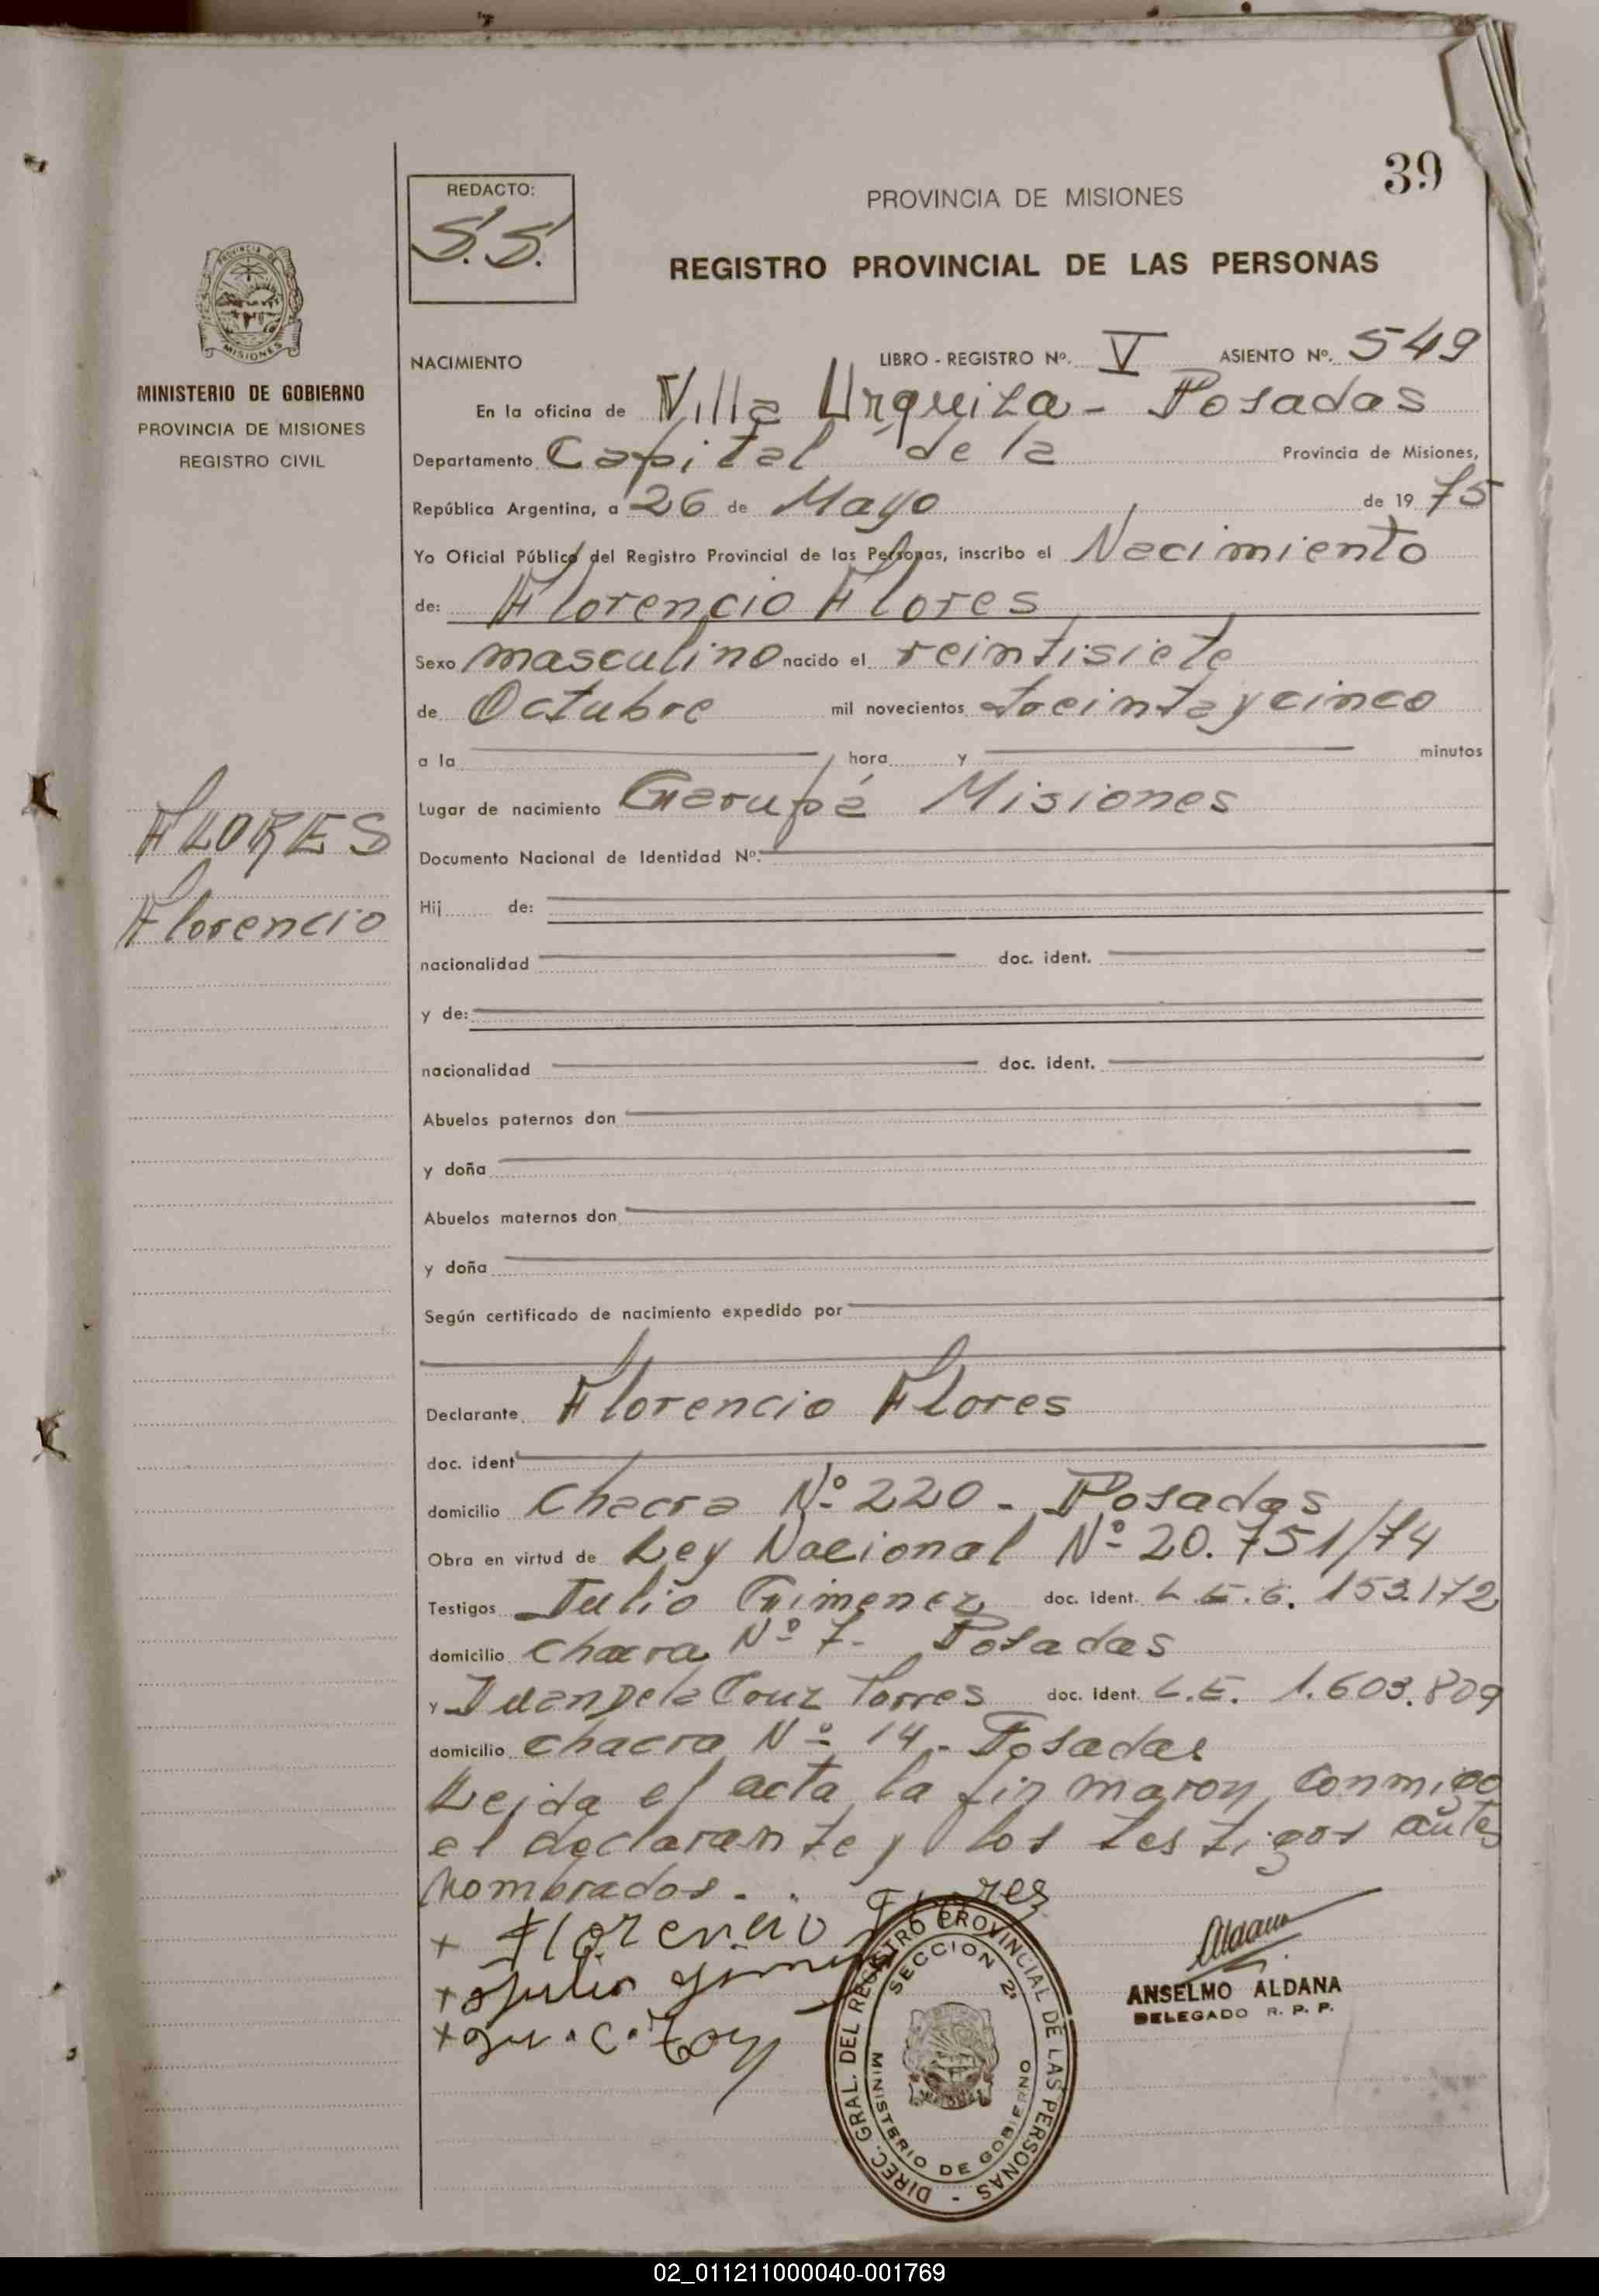 39
REDACTO:
S.S.
PROVINCIA DE MISIONES
REGISTRO PROVINCIAL DE LAS PERSONAS
PROVINCIA DE
MISIONES
MINISTERIO DE GOBIERNO
PROVINCIA DE MISIONES
REGISTRO CIVIL
NACIMIENTO LIBRO - REGISTRO Nº. V ASIENTO Nº. 549
En la oficina de Villa Urquiza - Posadas
Departamento Capital de la Provincia de Misiones,
República Argentina, a 26 de Mayo de 19 75
Yo Oficial Público del Registro Provincial de las Personas, inscribo el Nacimiento
de: Florencio Flores
Sexo masculino nacido el veintisiete
de Octubre mil novecientos treinta y cinco
a la hora y minutos
Lugar de nacimiento Garupá Misiones
FLORES
Florencio
Documento Nacional de Identidad Nº.
Hij de:
nacionalidad doc. ident.
y de:
nacionalidad doc. ident.
Abuelos paternos don
y doña
Abuelos maternos don
y doña
Según certificado de nacimiento expedido por
Declarante Florencio Flores
doc. ident
domicilio Chacra Nº 220 - Posadas
Obra en virtud de Ley Nacional Nº 20.751/74
Testigos Julio Gimenez doc. ident. L.E. 6. 153.172
domicilio chacra Nº 7- Posadas
y Juan De la Cruz Torres doc. ident. L.E. 1.603.809
domicilio chacra Nº 14 - Posadas
Leida el acta la firmaron conmigo
el declarante y los testigos antes
nombrados.
+ Florencio Flores
+ Julio Gimenez
+ Ju. C. Torres
DIREC. GRAL. DEL REGISTRO PROVINCIAL DE LAS PERSONAS -
SECCION 2ª
MINISTERIO DE GOBIERNO
Aldana
ANSELMO ALDANA
DELEGADO R. P. P.
02_011211000040-001769